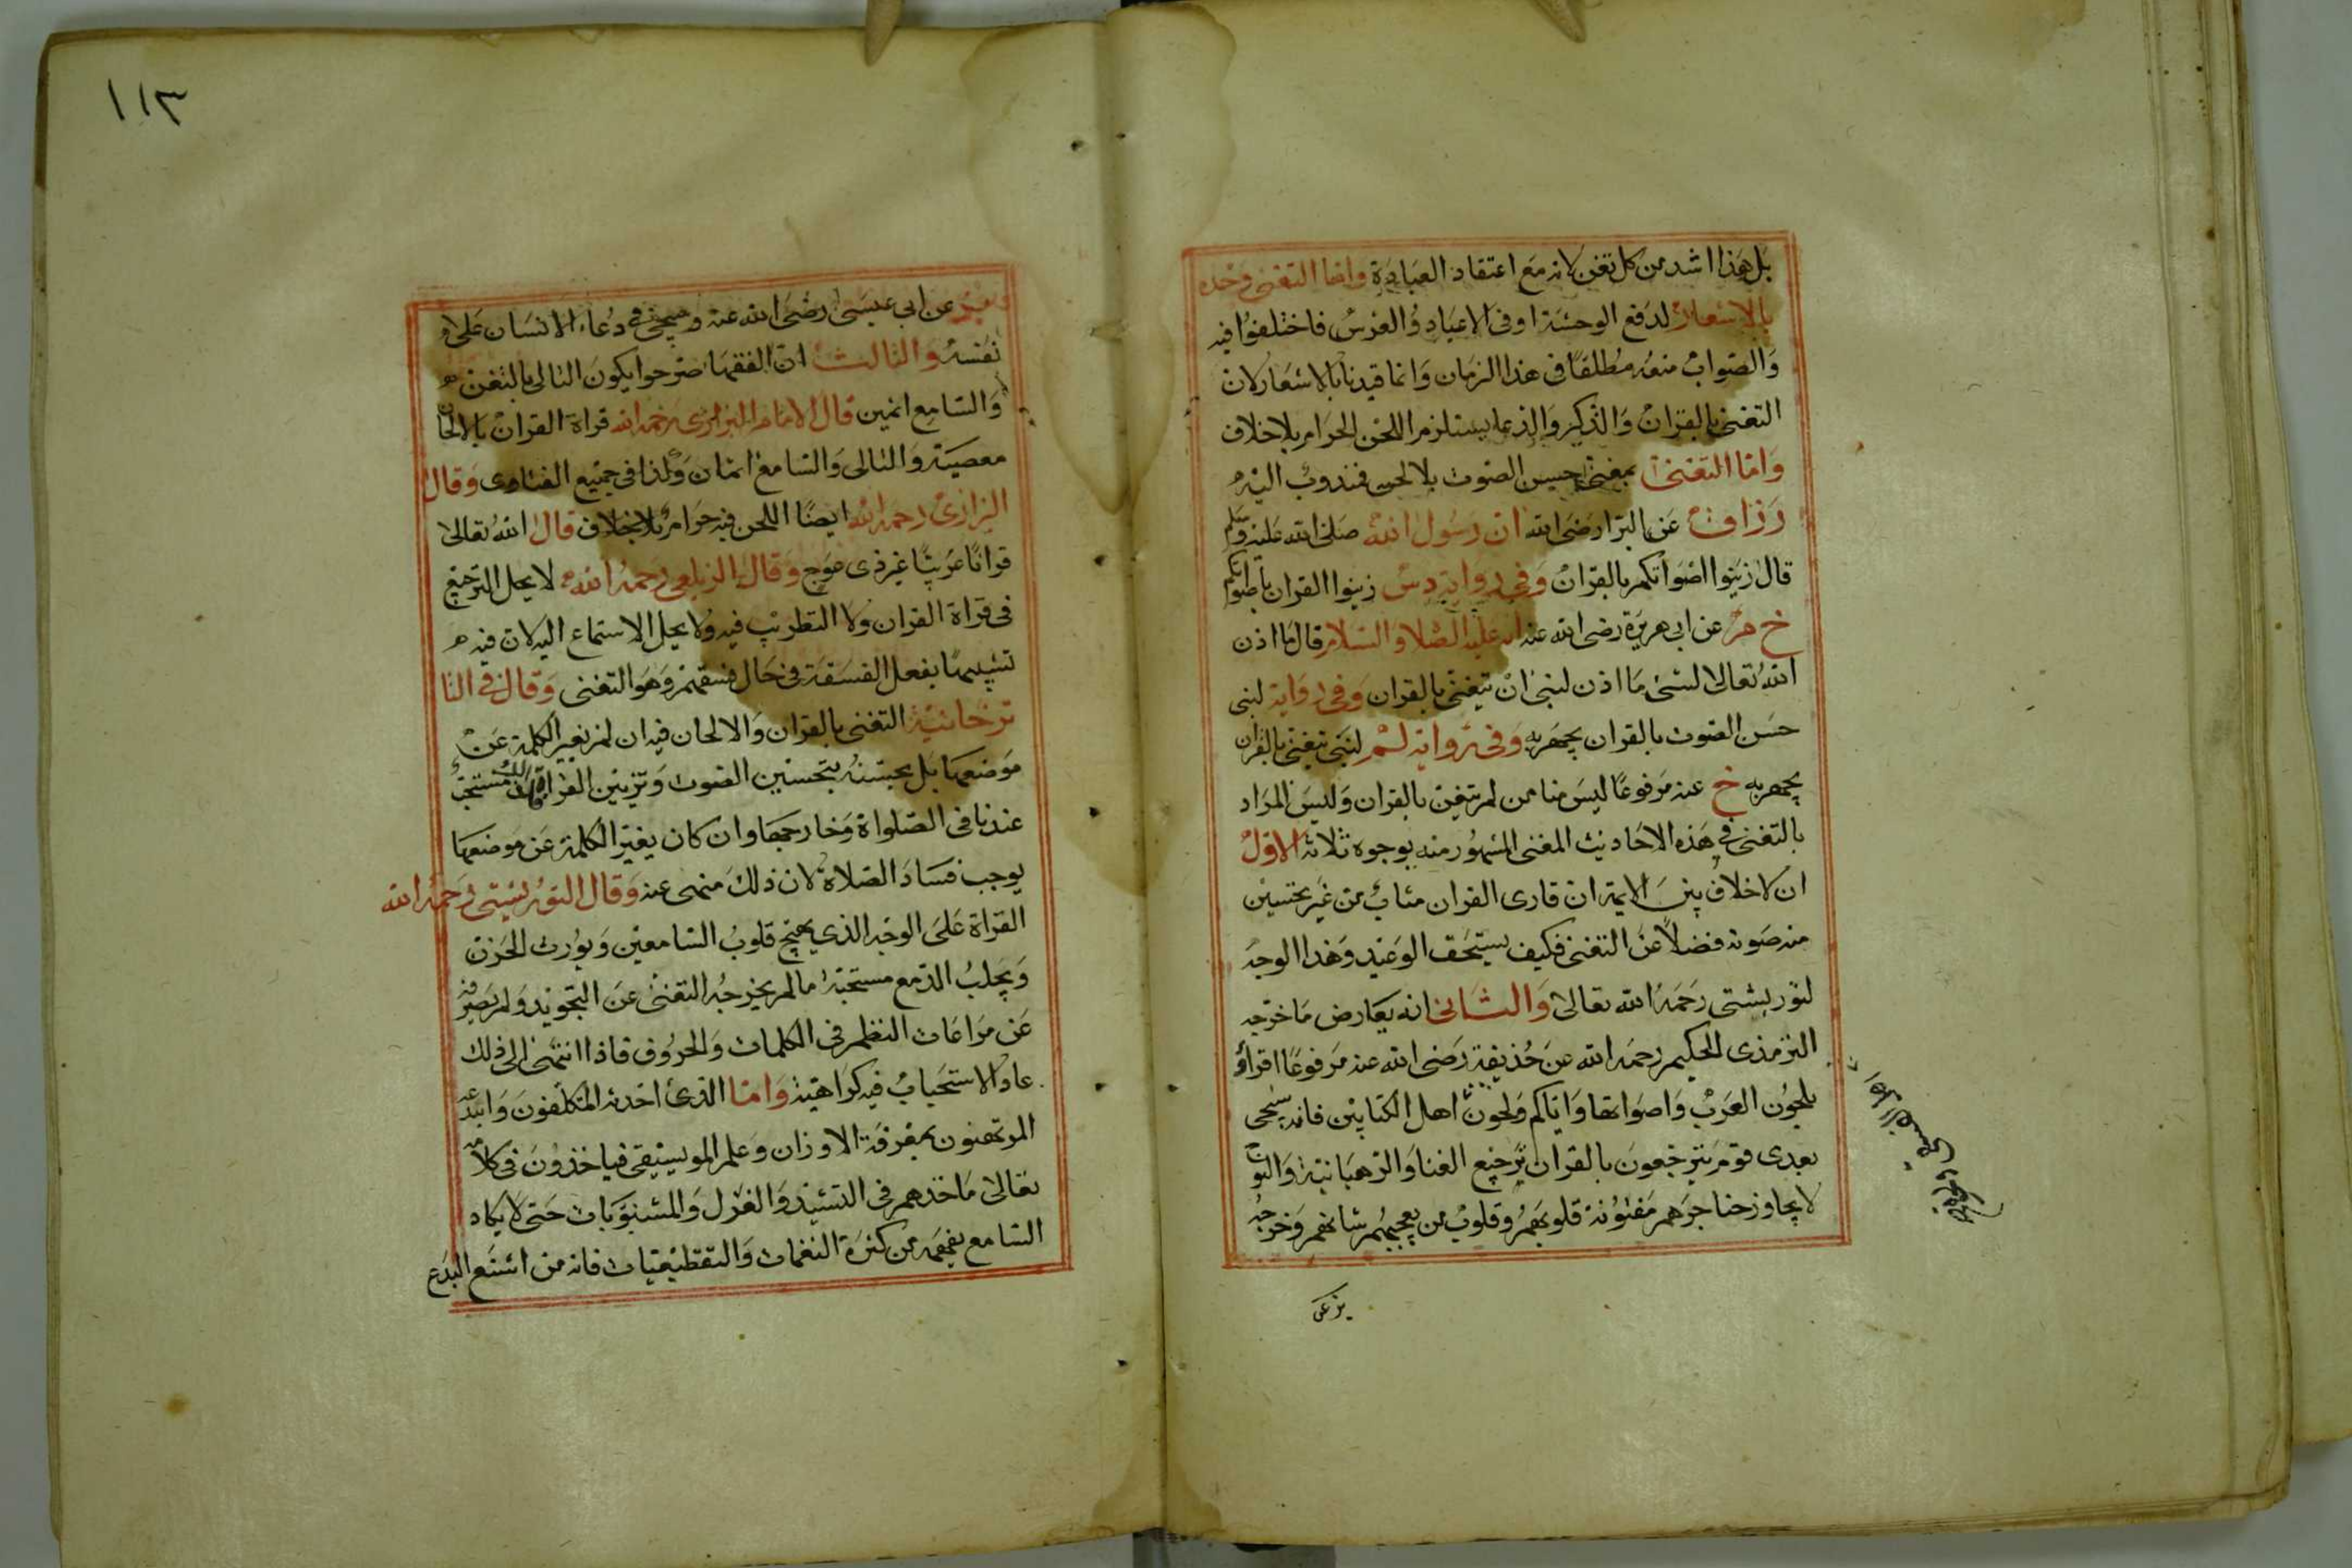 بل هذا اشد من كل تغن لانه مع اعتقاد العبادة واما التغنى وحده
بالاشعار لدفع الوحشة او فى الاعياد والعرس فاختلفوا فيه
والصواب منعه مطلقا فى هذا الزمان وانما قيدنا بالاشعار لان
التغنى بالقران والذكر والدعا يستلزم اللحن الحرام بلا خلاف
واما التغنى بمعنى حسن الصوت بلا لحن فمندوب اليه
رزاق عن البرا رضى الله ان رسول الله صلى الله عليه وسلم
قال زينوا اصواتكم بالقران وفى رواية دس زينوا القران باصواتكم
خ م عن ابى هريرة رضى الله عنه انه عليه الصلا والسلام قال ما اذن
الله تعالى لشئ ما اذن لنبى ان يتغنى بالقران وفى رواية لنبى
حسن الصوت بالقران يجهر به وفى رواية لم لنبى يتغنى بالقران
يجهر به خ عنه مرفوعا ليس منا من لم يتغن بالقران وليس المراد
بالتغنى فى هذه الاحاديث المعنى المشهور منه بوجوه ثلاثة الاول
ان لا خلاف بين الايمة ان قارى القران مثاب من غير تحسين
منه صوته فضلا عن التغنى فكيف يستحق الوعيد وهذا الوجه
لتوربشتى رحمه الله تعالى والثانى انه يعارض ما خرجه
الترمذى الحكيم رحمه الله عن حذيفة رضى الله عنه مرفوعا اقراؤ
بلحون العرب واصواتها واياكم ولحون اهل الكتابين فانه سيجى
بعدى قوم يترجعون بالقران ترجيع الغنا والرهبانية والنوح
لا يجاوز حناجرهم مفتونة قلوبهم وقلوب من يعجبهم شانهم وخرجه
١١٣
عن ابى عيسى رضى الله عنه وصحيح فى دعاء الانسان على
نفسه والثالث ان الفقها صرحوا بكون التالى بالتغن
والسامع اثمين قال الامام البزازى رحمه الله قراة القران بالالحان
معصية والتالى والسامع اثمان وكذا فى جميع الفتاوى وقال
البزازى رحمه الله ايضا اللحن فيه حرام بلا خلاف قال الله تعالى
قرانا عربيا غير ذى عوج وقال الزيلعى رحمه الله لا يحل الترجيع
فى قراة القران ولا التطريب فيه ولا يحل الاستماع اليه لان فيه
تشبيها بفعل الفسقة فى حال فسقهم وهو التغنى وقال فى التا
ترخانية التغنى بالقران والالحان فيه ان لم يغير الكلمة عن
موضعها بل يحسنه بتحسين الصوت وتزيين القراة فذلك مستحب
عندنا فى الصلواة وخارجها وان كان يغير الكلمة عن موضعها
يوجب فساد الصلاة لان ذلك منهى عنه وقال التوربشتى رحمه الله
القراة على الوجه الذي يهيج قلوب السامعين ويورث الحزن
ويجلب الدمع مستحبة ما لم يخرجه التغنى عن التجويد ولم يصرفه
عن مراعات النظم فى الكلمات والحروف فاذا انتهى الى ذلك
عاد الاستحباب فيه كراهية واما الذى احدثه المتكلفون وابتدعه
المرتهنون بمعرفة الاوزان وعلم الموسيقى فياخذون فى كلامه
تعالى ماخذهم فى التشيد والغزل والمشنويات حتى لا يكاد
السامع يفهمه من كثرة النغمات والتقطيعيات فانه من اشنع البدع